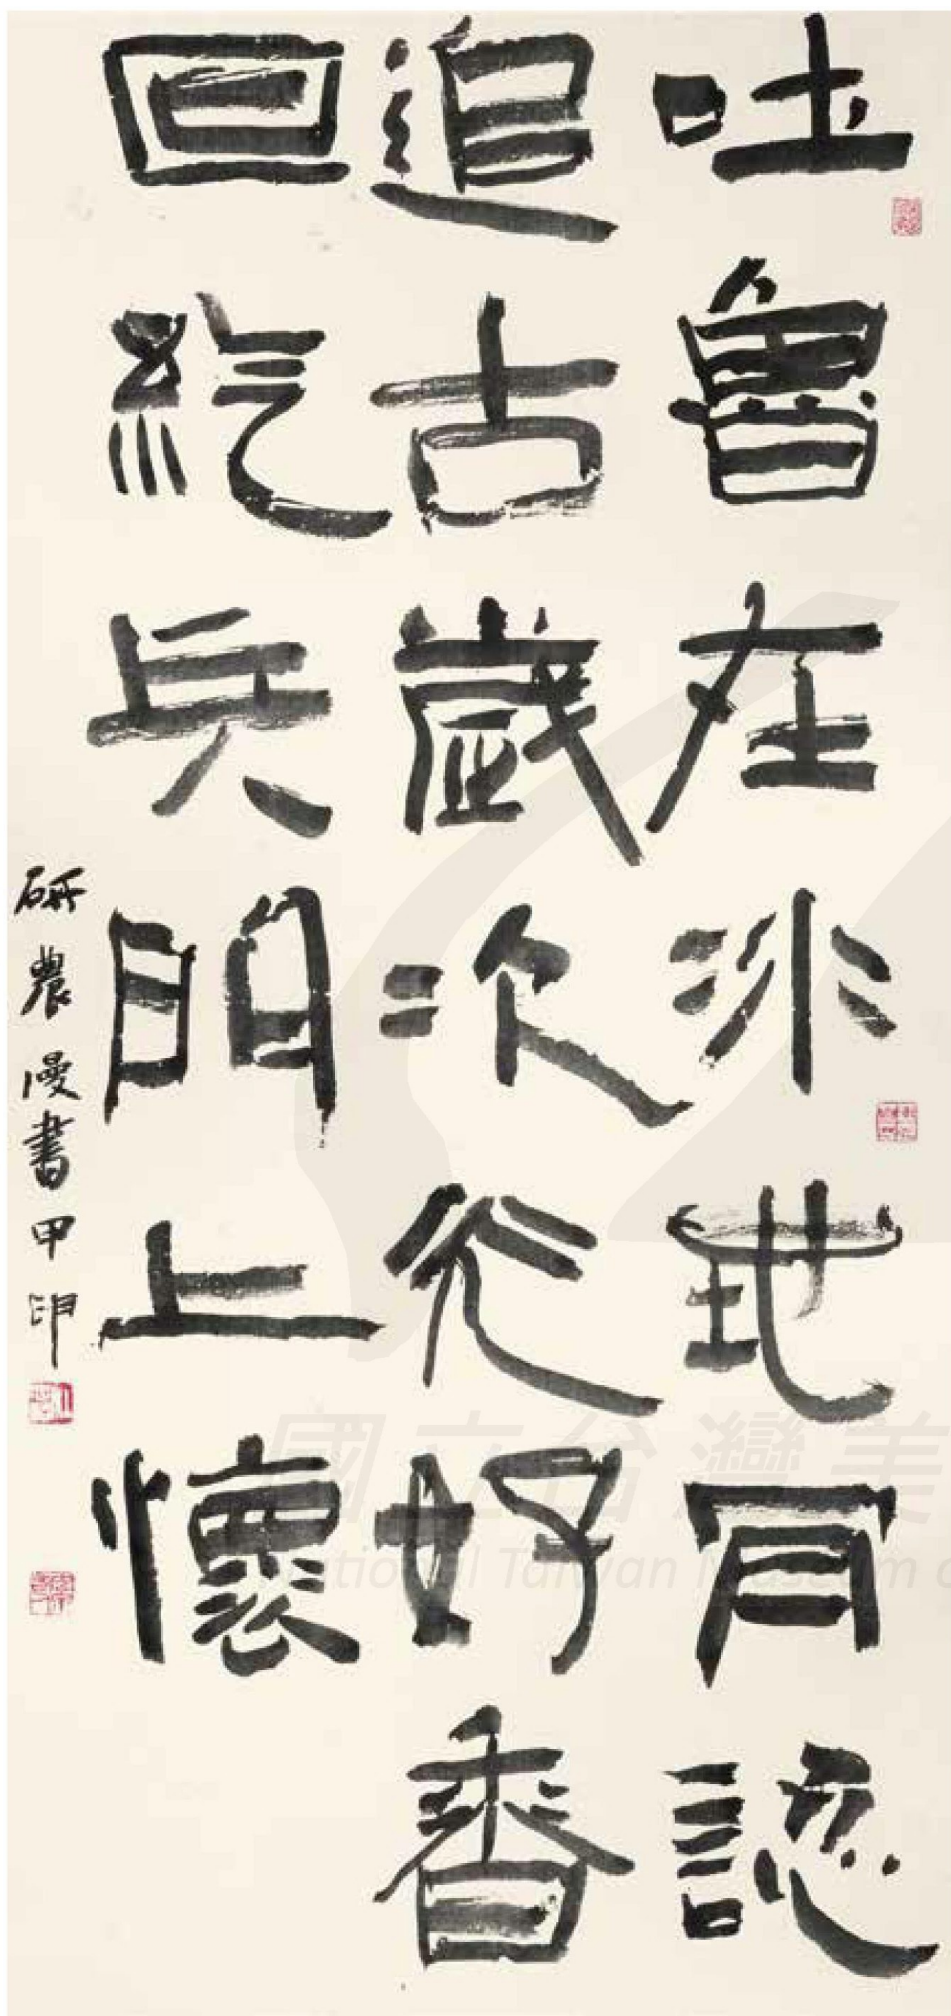 吐魯在沙地同認
追古歲次好香
回紇兵門上懷
研農漫書甲申
國立台灣美
National Taiwan Museum of